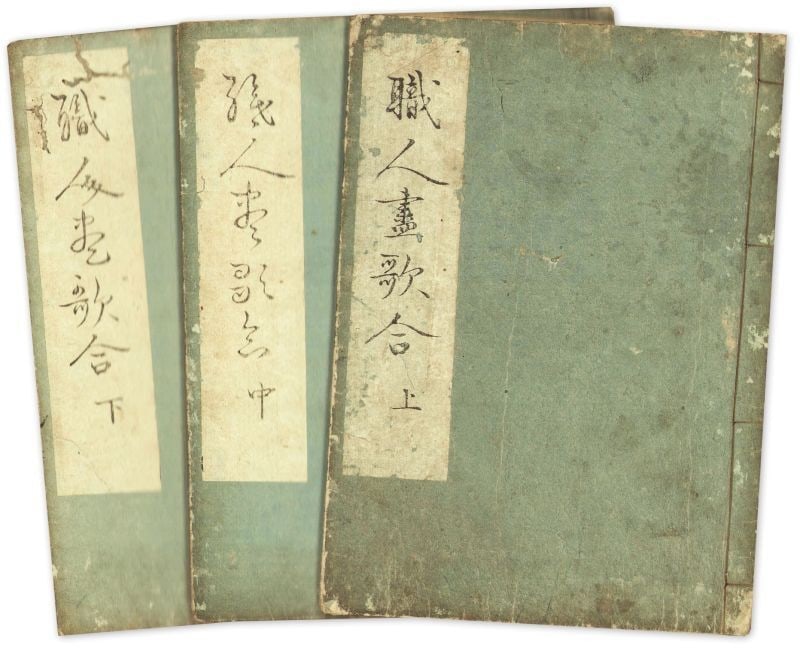 職人盡歌合 上
職人盡歌合 中
職人盡歌合 下